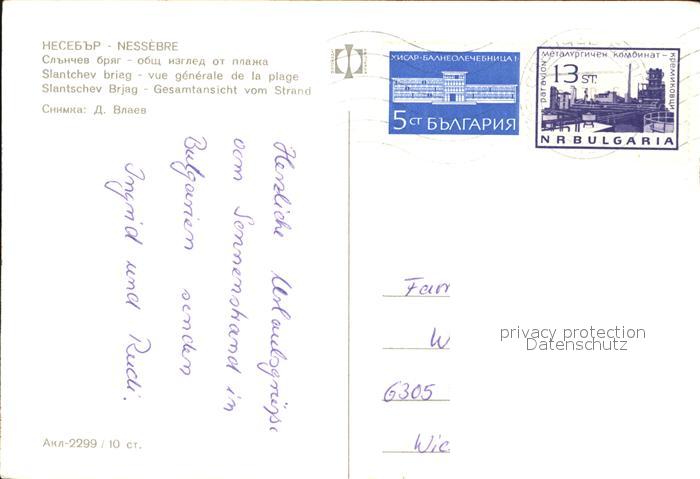 НЕСЕБЪР - NESSÈBRE
Слънчев бряг - общ изглед от плажа
Slantchev briag - vue générale de la plage
Slantschev Brjag - Gesamtansicht vom Strand
Снимка: Д. Влаев
ХИСАР-БАЛНЕОЛЕЧЕБНИЦА 1
5 СТ БЪЛГАРИЯ
МЕТАЛУРГИЧЕН КОМБИНАТ-КРЕМИКОВЦИ
par avion
13 ST.
NR BULGARIA
Herzliche Urlaubsgrüße
vom Sonnenstrand in
Bulgarien senden
Ingrid und Rudi.
Fam
W
6305
Wie
privacy protection
Datenschutz
Акл-2299 / 10 ст.